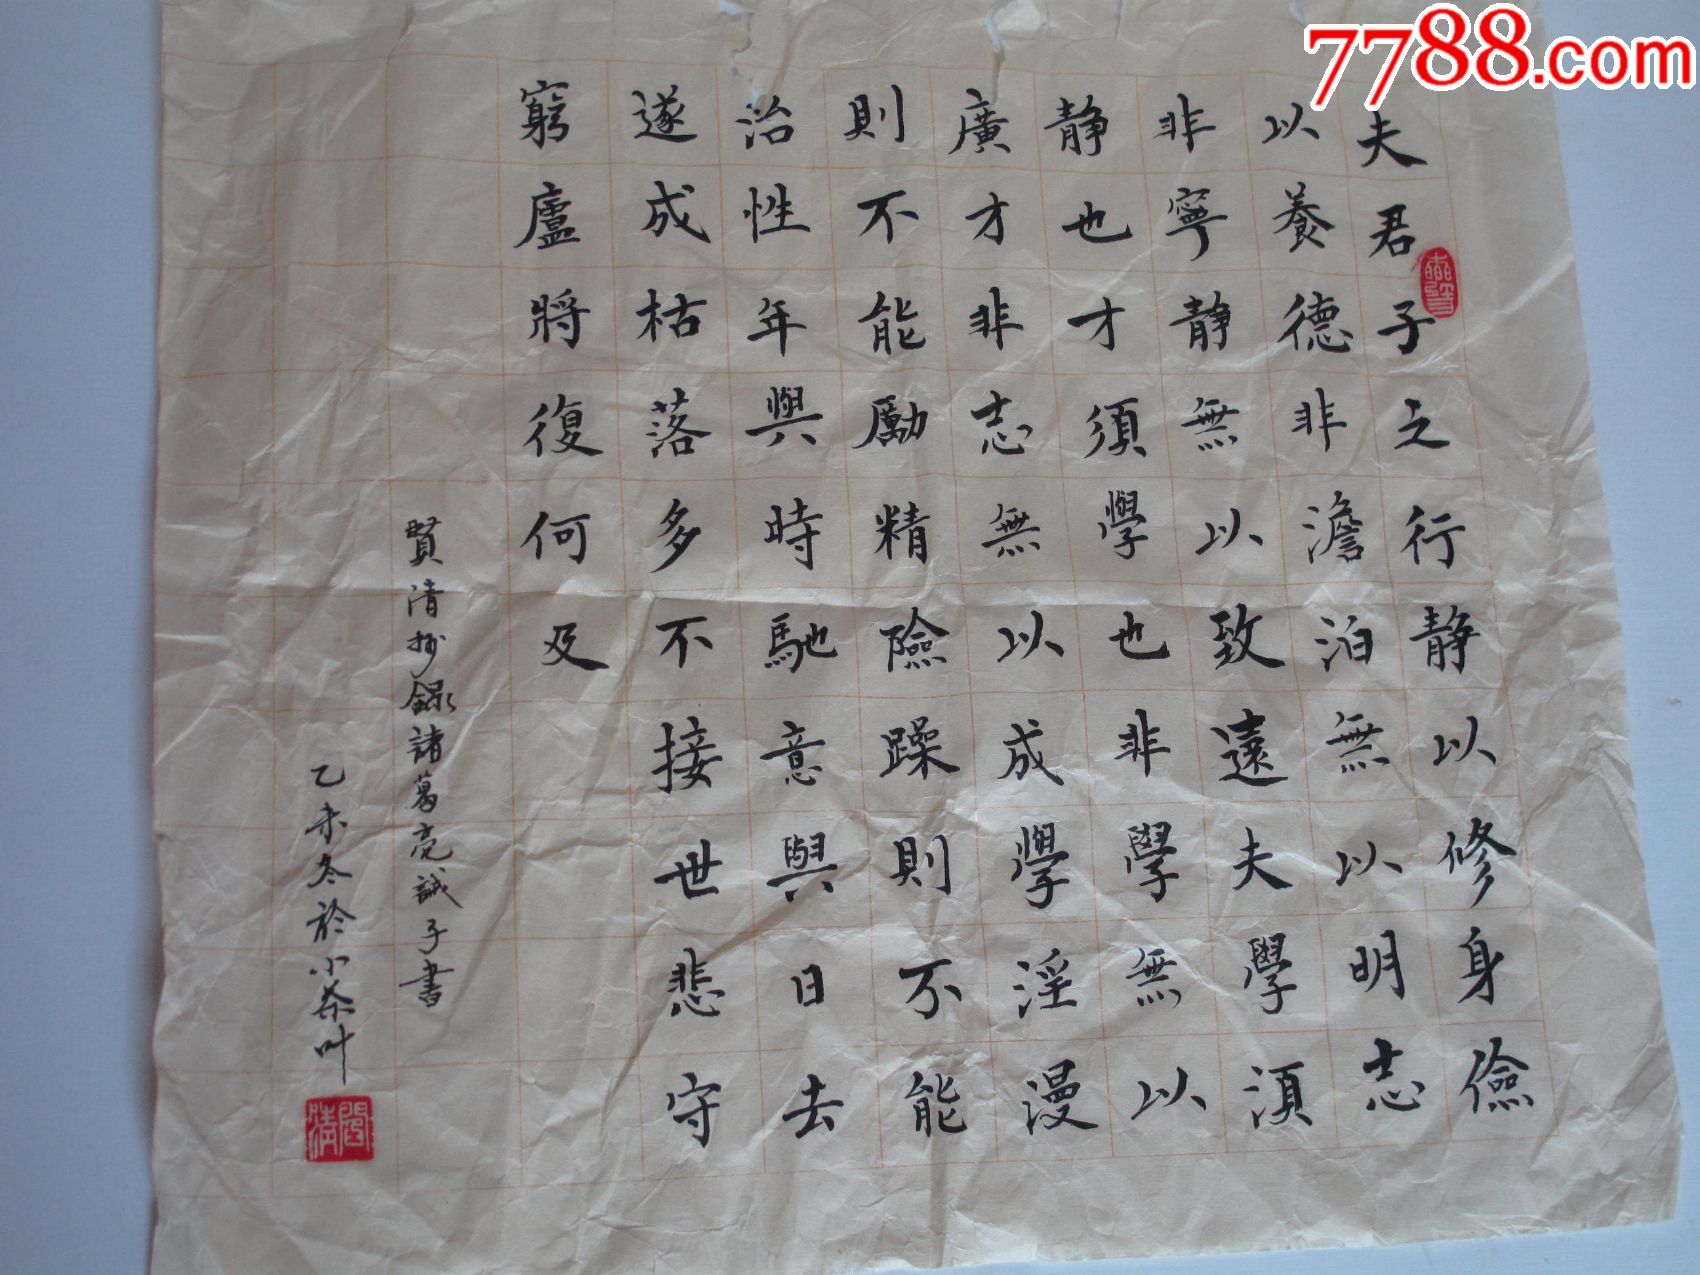 夫君子之行静以修身儉
以養德非澹泊無以明志
非寧静無以致遠夫學湏
静也才須學也非學無以
廣才非志無以成學淫漫
則不能勵精險躁則不能
治性年與時馳意與日去
遂成枯落多不接世悲守
窮廬將復何及
賢清抄錄諸葛亮誡子書
乙未冬於小茶叶
7788.com